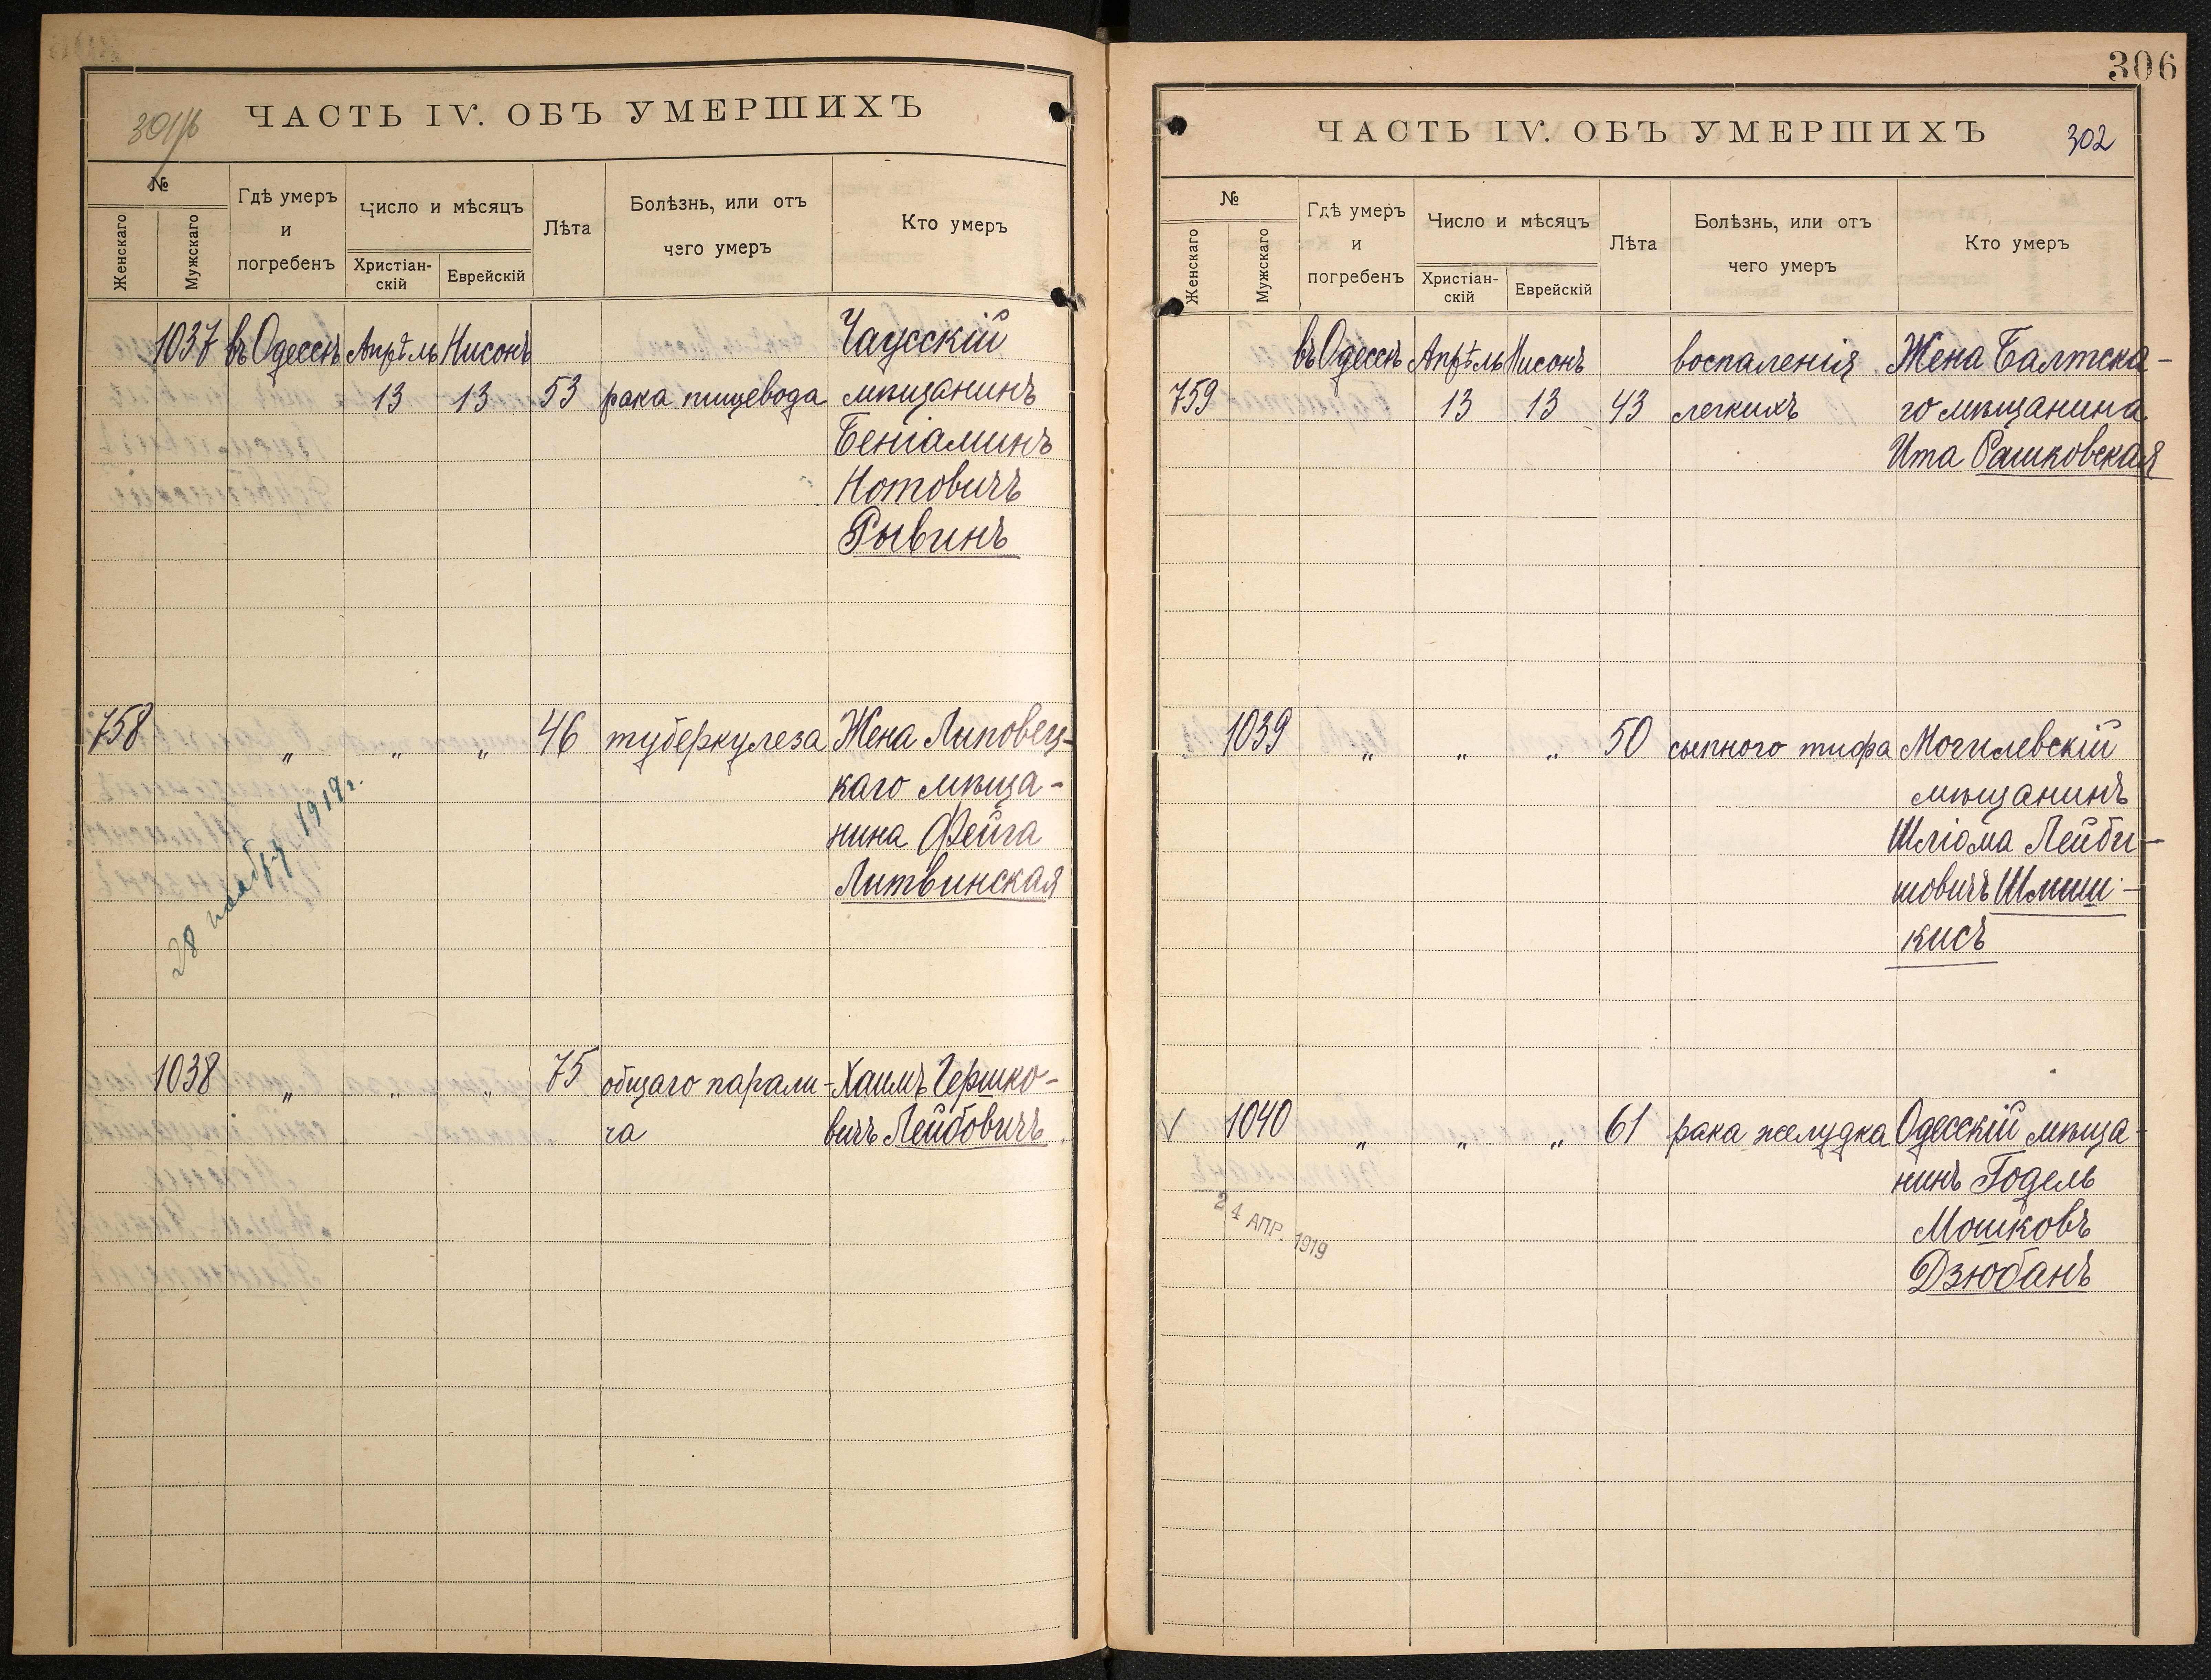 301/б
ЧАСТЬ IV. ОБЪ УМЕРШИХЪ
№
Женскаго
Мужскаго
Гдѣ умеръ
и
погребенъ
Число и мѣсяцъ
Христіан-
скій
Еврейскій
Лѣта
Болѣзнь, или отъ
чего умеръ
Кто умеръ
1037 въ Одессѣ Апрѣль Нисонъ Чаусскій
13 13 53 рака пищевода мѣщанинъ
Беніаминъ
Нотовичъ
Рывинъ
758 „ „ „ 46 туберкулеза Жена Липовец-
каго мѣща-
нина Фейга
Литвинская
28 ноября 1919 г.
1038 „ „ „ 75 общаго парали- Хаимъ Гершко-
ча вичъ Лейбовичъ
306
ЧАСТЬ IV. ОБЪ УМЕРШИХЪ
302
№
Женскаго
Мужскаго
Гдѣ умеръ
и
погребенъ
Число и мѣсяцъ
Христіан-
скій
Еврейскій
Лѣта
Болѣзнь, или отъ
чего умеръ
Кто умеръ
въ Одессѣ Апрѣль Нисонъ воспаленія Жена Балтска-
759 13 13 43 легкихъ го мѣщанина
Ита Рашковская
1039 „ „ „ 50 сыпного тифа Могилевскій
мѣщанинъ
Шліома Лейби-
шовичъ Шмиш-
кисъ
✓ 1040 „ „ „ 61 рака желудка Одесскій мѣща-
нинъ Годель
Мошковъ
Дзюбанъ
24 АПР. 1919